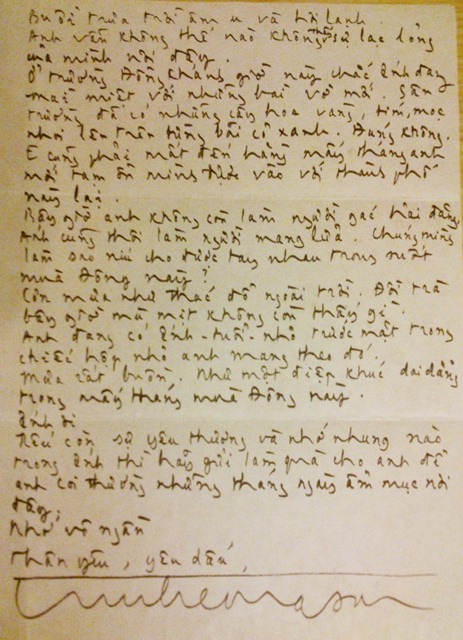 Buổi trưa trời âm u và hơi lạnh.
Anh vẫn không thể nào không thấy sự lạc lõng
của mình nơi đây.
Ở trường Đồng Khánh giờ này chắc Ánh đang
mải miết với những bài vở mới. Sân
trường đã có những cây hoa vàng, tím, mọc
nhoi lên trên từng bãi cỏ xanh. Đúng không.
E cũng phải mất đến hàng mấy tháng anh
mới tạm ổn mình được vào với thành phố
này lại.
Bây giờ anh không còn làm người gác hải đăng.
Anh cũng thôi làm người mang lửa. Chúng mình
làm sao níu cho được tay nhau trong suốt
mùa Đông này?
Còn mưa như thác đổ ngoài trời. Đồi trà
bây giờ mù mịt không còn thấy gì.
Anh đang có Ánh-tuổi-nhỏ trước mặt trong
chiếc hộp nhỏ anh mang theo đó.
Mưa rất buồn. Như một điệp khúc dai dẳng
trong mấy tháng mùa Đông này.
Ánh ơi
Nếu còn sự yêu thương và nhớ nhung nào
trong Ánh thì hãy gửi làm quà cho anh để
anh coi thường những tháng ngày ẩm mục nơi
đây.
Nhớ vô ngần
Thân yêu, yêu dấu,
trinhcongson